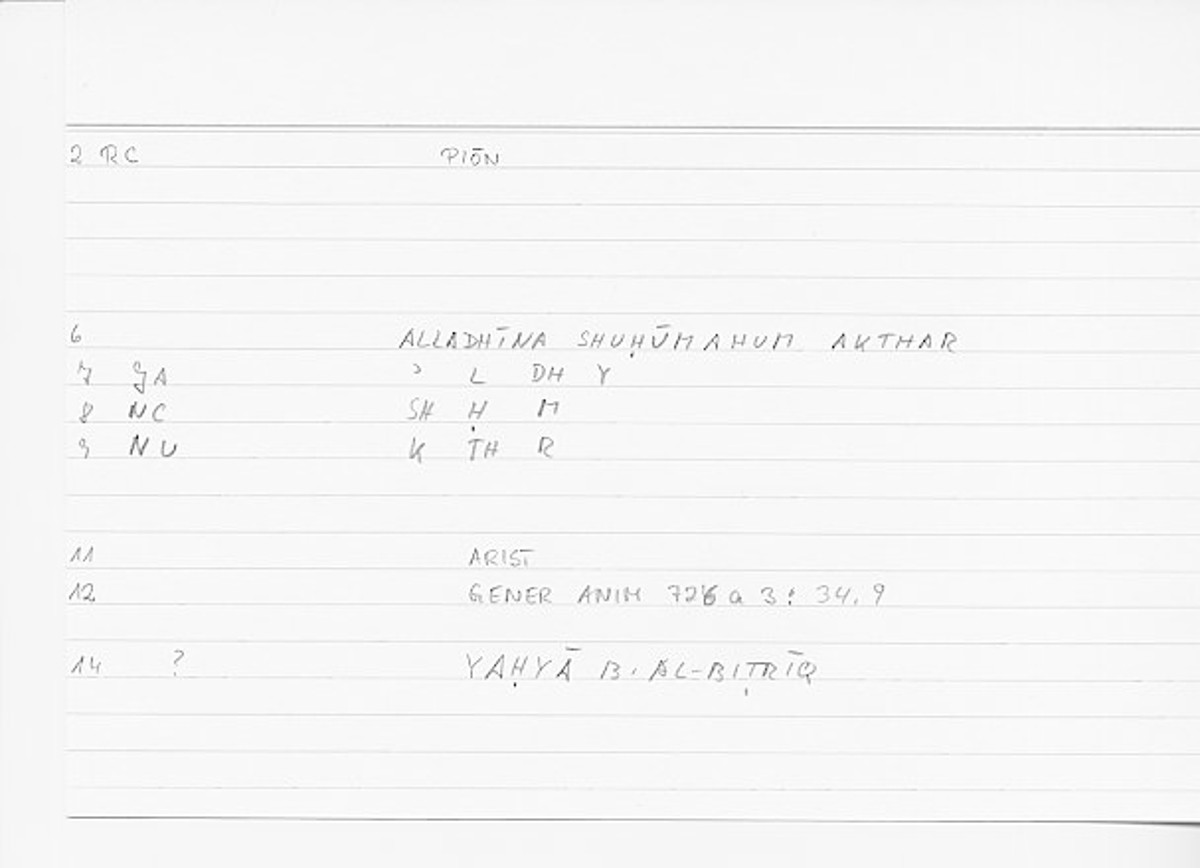 2 RC PIŌN
6 ALLADHĪNA SHUḤŪMAHUM AKTHAR
7 GA ʾ L DH Y
8 NC SH Ḥ M
9 NU K TH R
11 ARIST
12 GENER ANIM 726 a 3 : 34.9
14 ? YAḤYĀ B. AL-BIṬRĪQ